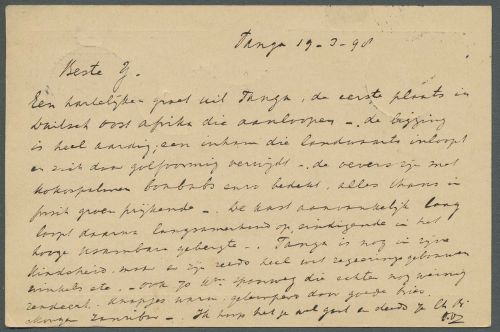 Tanga 19-3-98
Beste J.
Een hartelijken groet uit Tanga, de eerste plaats in
Duitsch Oost Afrika die aanloopen -. de ligging
is heel aardig, een inham die landwaarts inloopt
en zich daar golfvormig verwijdt -. de oevers zijn met
kokospalmen baobabs enz bedekt, alles thans in
groen prijkende -. De kust aanvankelijk laag
loopt daarna langzamerhand op, eindigende in het
hooge Usambara gebergte -. Tanga is nog in zijne
kindsheid, maar er zijn reeds heel wat regeeringsgebouwen
winkels etc. - ook 40 Km. spoorweg die echter nog weinig
rendeert. warm, goede bries.
morgen Zanzibar -. Ik hoop het je wel gaat en